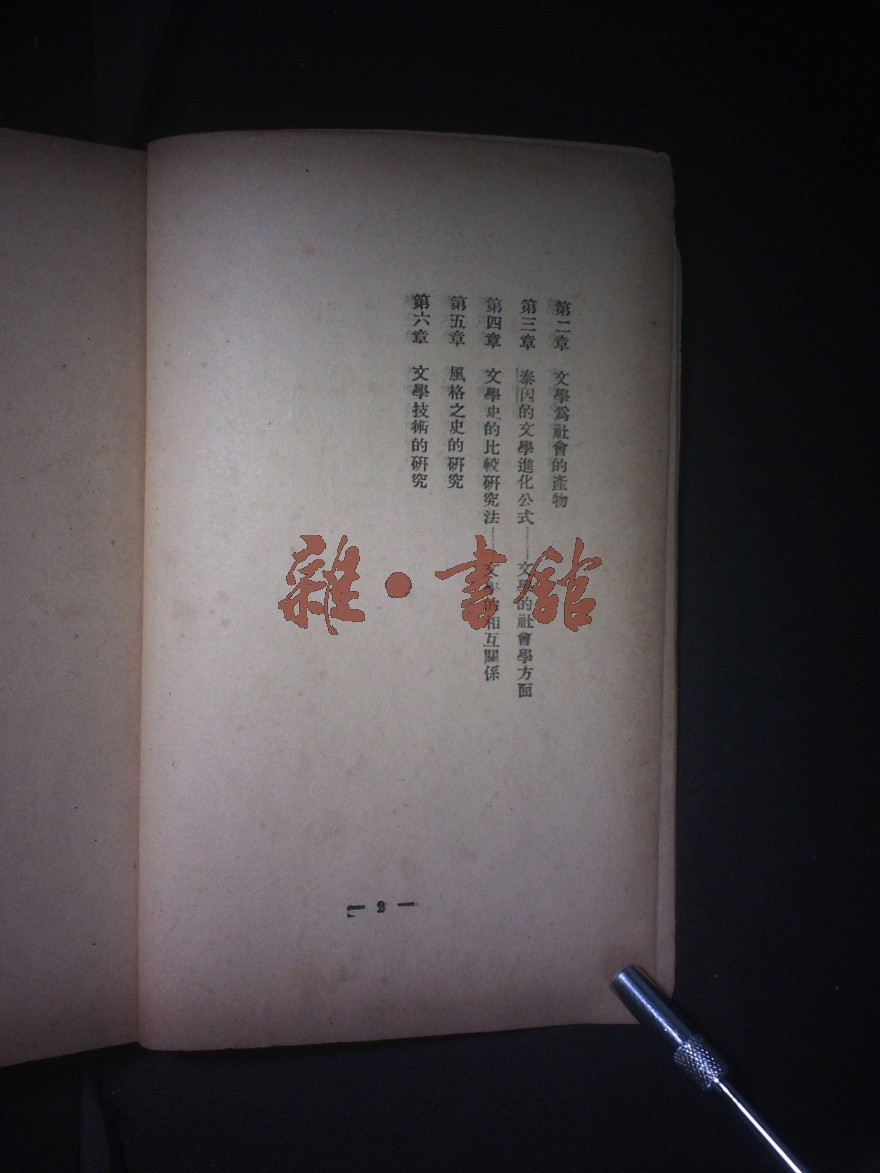 第二章　文學爲社會的產物
第三章　泰因的文學進化公式——文學的社會學方面
第四章　文學史的比較研究法——文學的相互關係
第五章　風格之史的研究
第六章　文學技術的研究
雜·書館
— 2 —